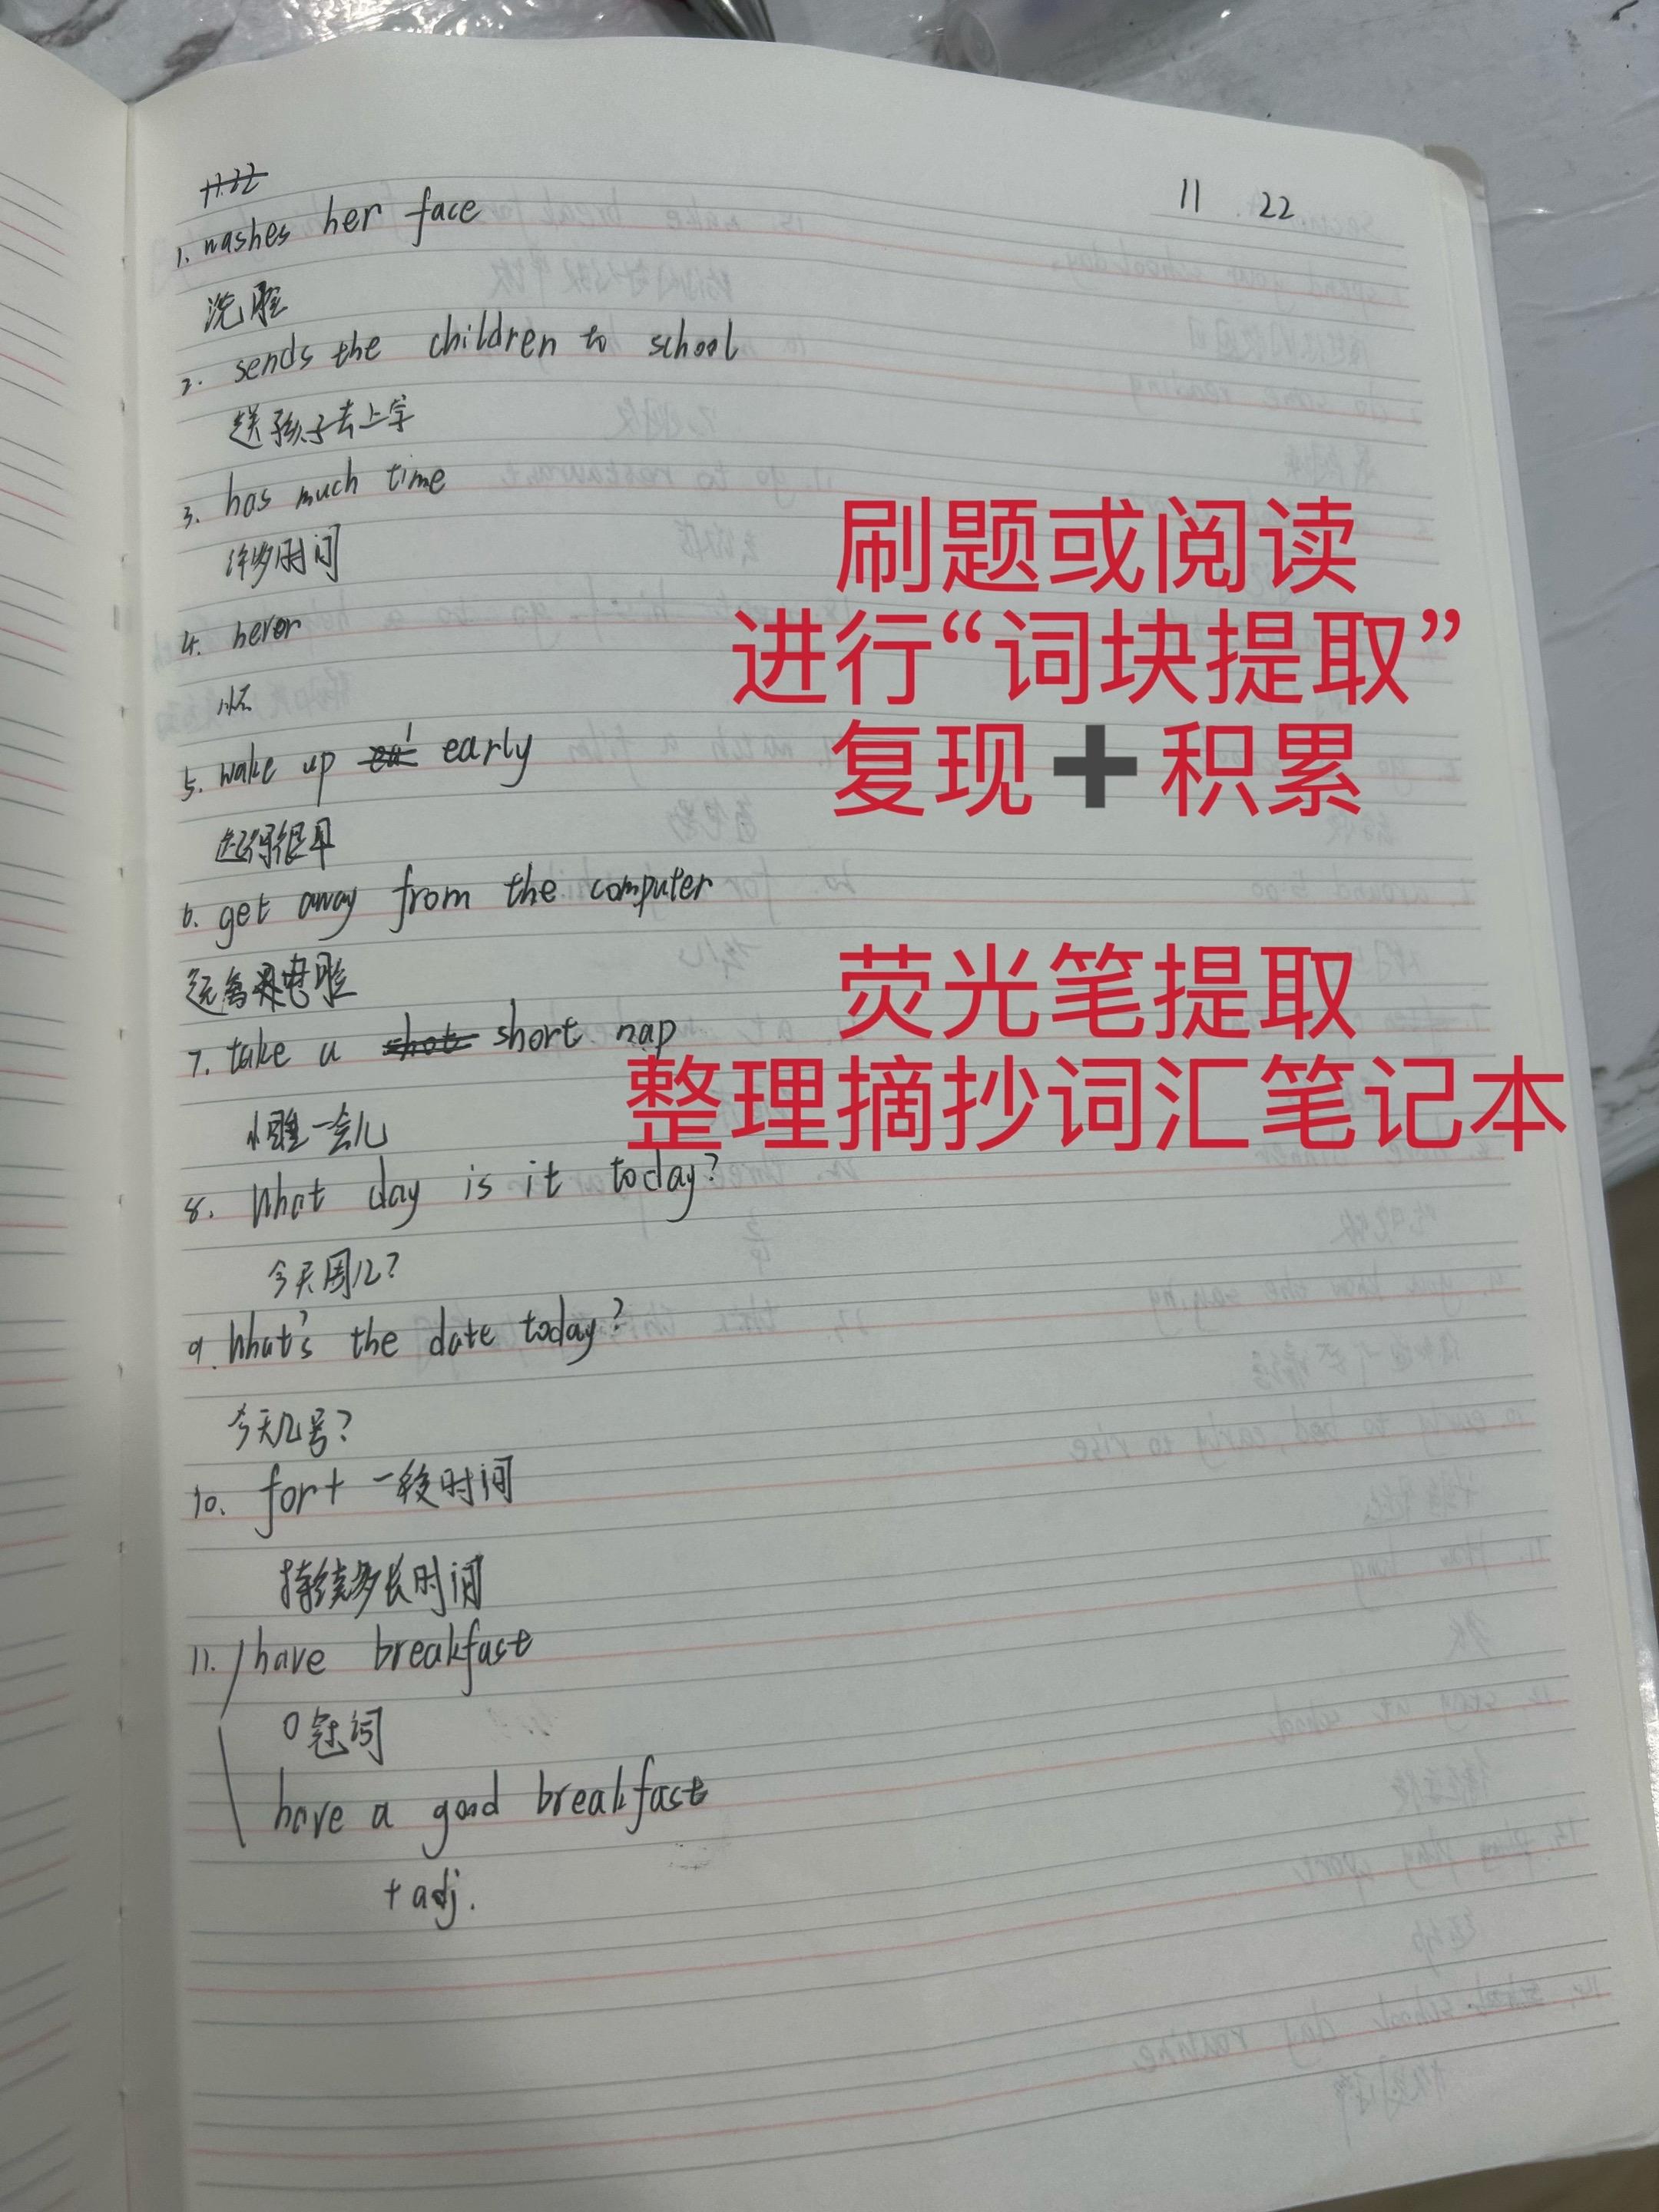 11.22
11 22
1. washes her face
洗脸
2. sends the children to school
送孩子去上学
3. has much time
许多时间
刷题或阅读
4. never
进行“词块提取”
5. wake up early
复现➕积累
起得很早
6. get away from the computer
远离电脑
荧光笔提取
7. take a shot short nap
整理摘抄词汇笔记本
小睡一会儿
8. What day is it today?
今天周几?
9. What's the date today?
今天几号?
10. for+ 一段时间
持续多长时间
11. have breakfast
0冠词
have a good breakfast
+ adj.